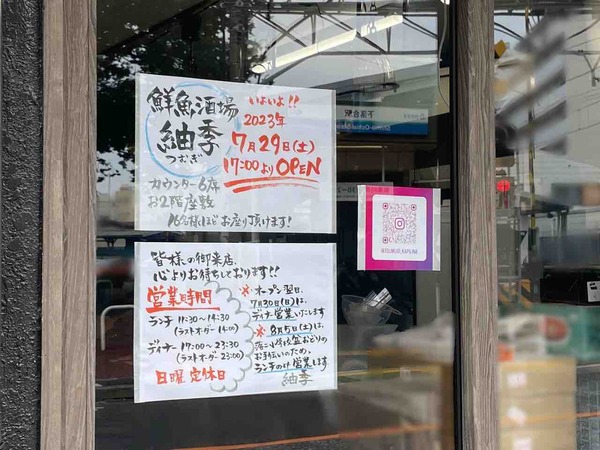 鮮魚酒場
紬季
つむぎ
いよいよ!!
2023年
7月29日(土)
17:00より OPEN
カウンター6席
お2階座敷
16名様ほどお座り頂けます!
皆様の御来店、
心よりお待ちしております!!
営業時間
ランチ 11:30〜14:30
(ラストオーダー 14:00)
ディナー 17:00〜23:30
(ラストオーダー 23:00)
日曜 定休日
※オープン翌日、
7月30日(日)は、
ディナー営業いたします
※8月5日(土)は、
盆おどりの
お手伝いのため、
ランチのみ営業します
紬季
下落合駅